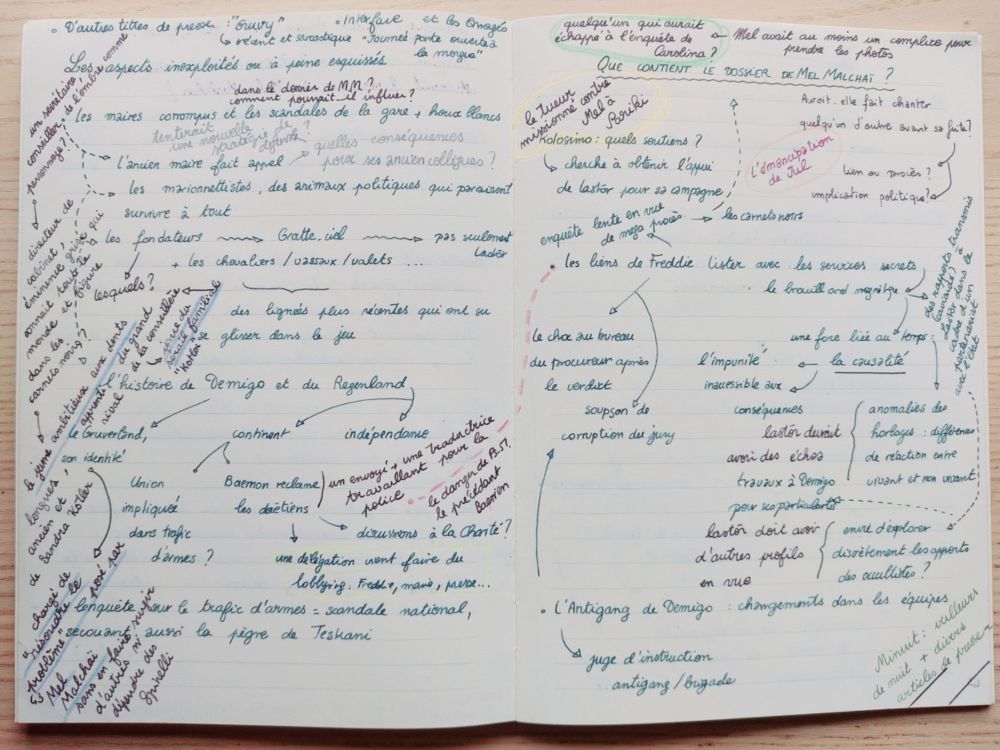 • D'autres titres de presse : "Gruvy"
↳ récent et sarcastique "Journée porte ouverte à la morgue"
• Interface et les Enragés
Les aspects inexploités ou à peine esquissés
dans le dossier de MM ?
comment pourrait-il influer ?
les maires corrompus et les scandales de la gare + houx blancs
tenterait
une nouvelle
stratégie de
défense ?
l'ancien maire fait appel
quelles conséquences
pour ses anciens collègues ?
les marionnettistes, des animaux politiques qui paraissent
survivre à tout
les fondateurs
Gratte-ciel
pas seulement
Lastór
+ les chevaliers / vassaux / valets ...
lesquels ?
des lignées plus récentes qui ont su
se glisser dans le jeu
l'histoire de Demigo et du Regenland
le Gruverland,
son identité
continent
indépendance
Union
impliquée
dans trafic
d'armes ?
Baemon reclame
les daëtiens
un envoyé + une traductrice
travaillant pour la
police
le danger de B.ST.
le précédent
discussions à la Charité ?
une délégation vient faire du
lobbying : Freddie, mairie, presse...
l'enquête sur le trafic d'armes = scandale national,
secouant aussi la pègre de Teskani
un secrétaire,
conseiller de l'ombre comme
personnage ?
directeur de
cabinet,
éminence grise qui
connaît tout le
monde et figure
dans les
carnets noirs ?
le jeune ambitieux aux dents
longues,
apprenti du grand
rival
ancien
de la conseillère
issue du
cercle familial
"Kotler"
de Sandra Kotler
chargé de
"résoudre le
problème" posé par
Mel
Malchaï
sans en faire surgir
d'autres ni
dépendre des
Spirelli
quelqu'un qui aurait
échappé à l'enquête de
Carolina ?
Mel avait au moins un complice pour
prendre les photos
QUE CONTIENT LE DOSSIER DE MEL MALCHAÏ ?
le tueur
missionné contre
Mel à
Bouiki
Aurait-elle fait chanter
quelqu'un d'autre avant sa fuite ?
Kolosimo : quels soutiens ?
L'émancipation
de Jul
lien au procès ?
implication politique ?
cherche à obtenir l'appui
de Lastór pour sa campagne
enquête lente en vue
de mega procès
les carnets noirs
• les liens de Freddie Lister avec les services secrets
le brouillard
des rapports transmis
à
Lastór dans le
cadre d'un
partenariat
avec l'Etat
le choc au bureau
du procureur après
le verdict
une force liée au temps :
l'impunité
la causalité
inaccessible aux
conséquences
soupçon de
corruption du jury
Lastór devrait
avoir des échos
travaux à Demigo
pour ses
anomalies des
horloges : différences
de réaction entre
vivant et non vivant
Lastór doit avoir
d'autres profils
en vue
envie d'explorer
discrètement les apports
des occultistes ?
• L'Antigang de Demigo : changements dans les équipes
juge d'instruction
antigang / brigade
Minuit : veilleurs
de nuit + divers
articles de presse